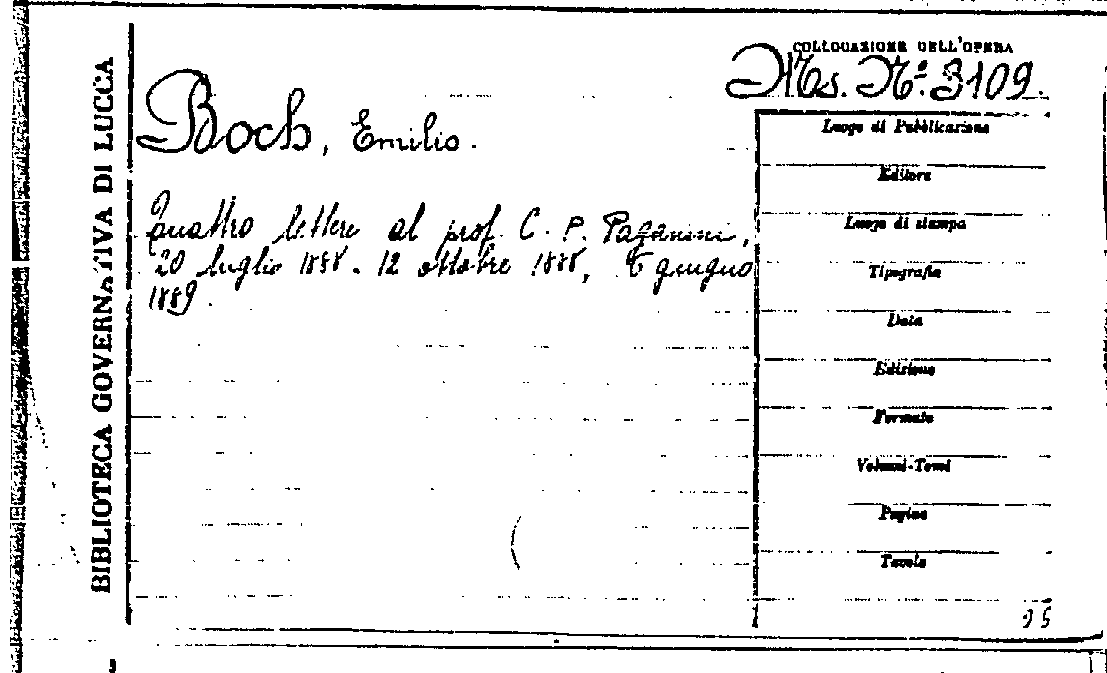 BIBLIOTECA GOVERNATIVA DI LUCCA
COLLOCAZIONE DELL'OPERA
Ms. N.º 3109.
Boch, Emilio.
Quattro lettere al prof. C. P. Paganini,
20 luglio 1888 - 12 ottobre 1888, 6 giugno
1889.
Luogo di Pubblicazione
Editore
Luogo di stampa
Tipografia
Data
Edizione
Formato
Volumi-Tomi
Pagine
Tavole